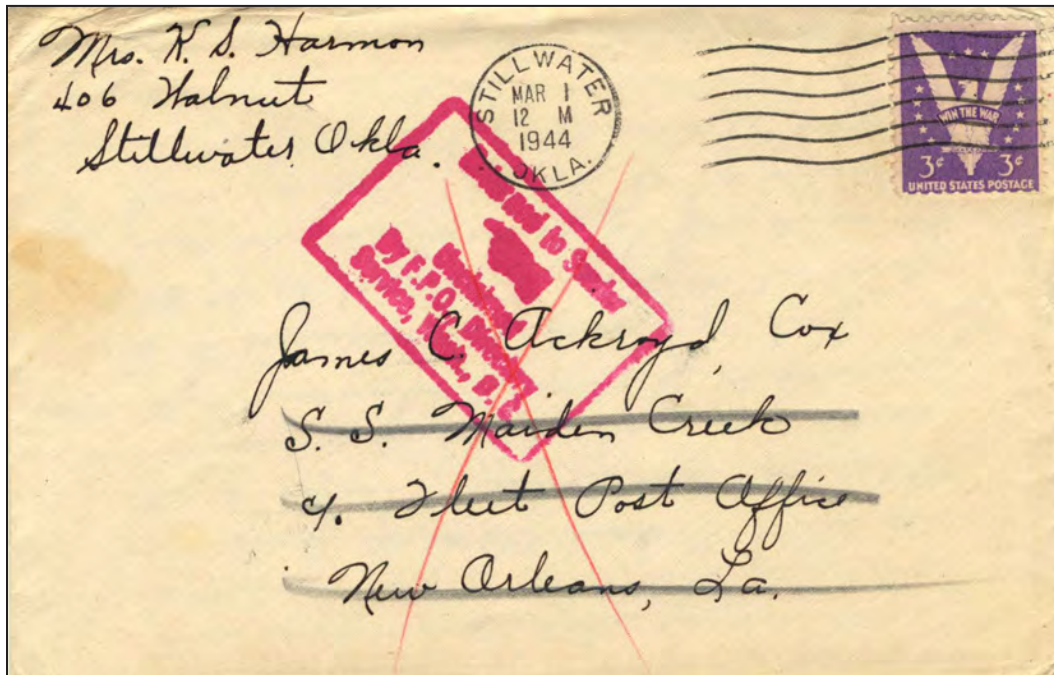 Mrs. K. S. Harmon
406 Walnut
Stillwater Okla.
STILLWATER
MAR 1
12 M
1944
OKLA.
WIN THE WAR
3¢ 3¢
UNITED STATES POSTAGE
Returned to Sender
By F.P.O. Directory
Service, Wash., D.C.
James C. Ackroyd, Cox
S. S. Maiden Creek
c/o Fleet Post Office
New Orleans, La.